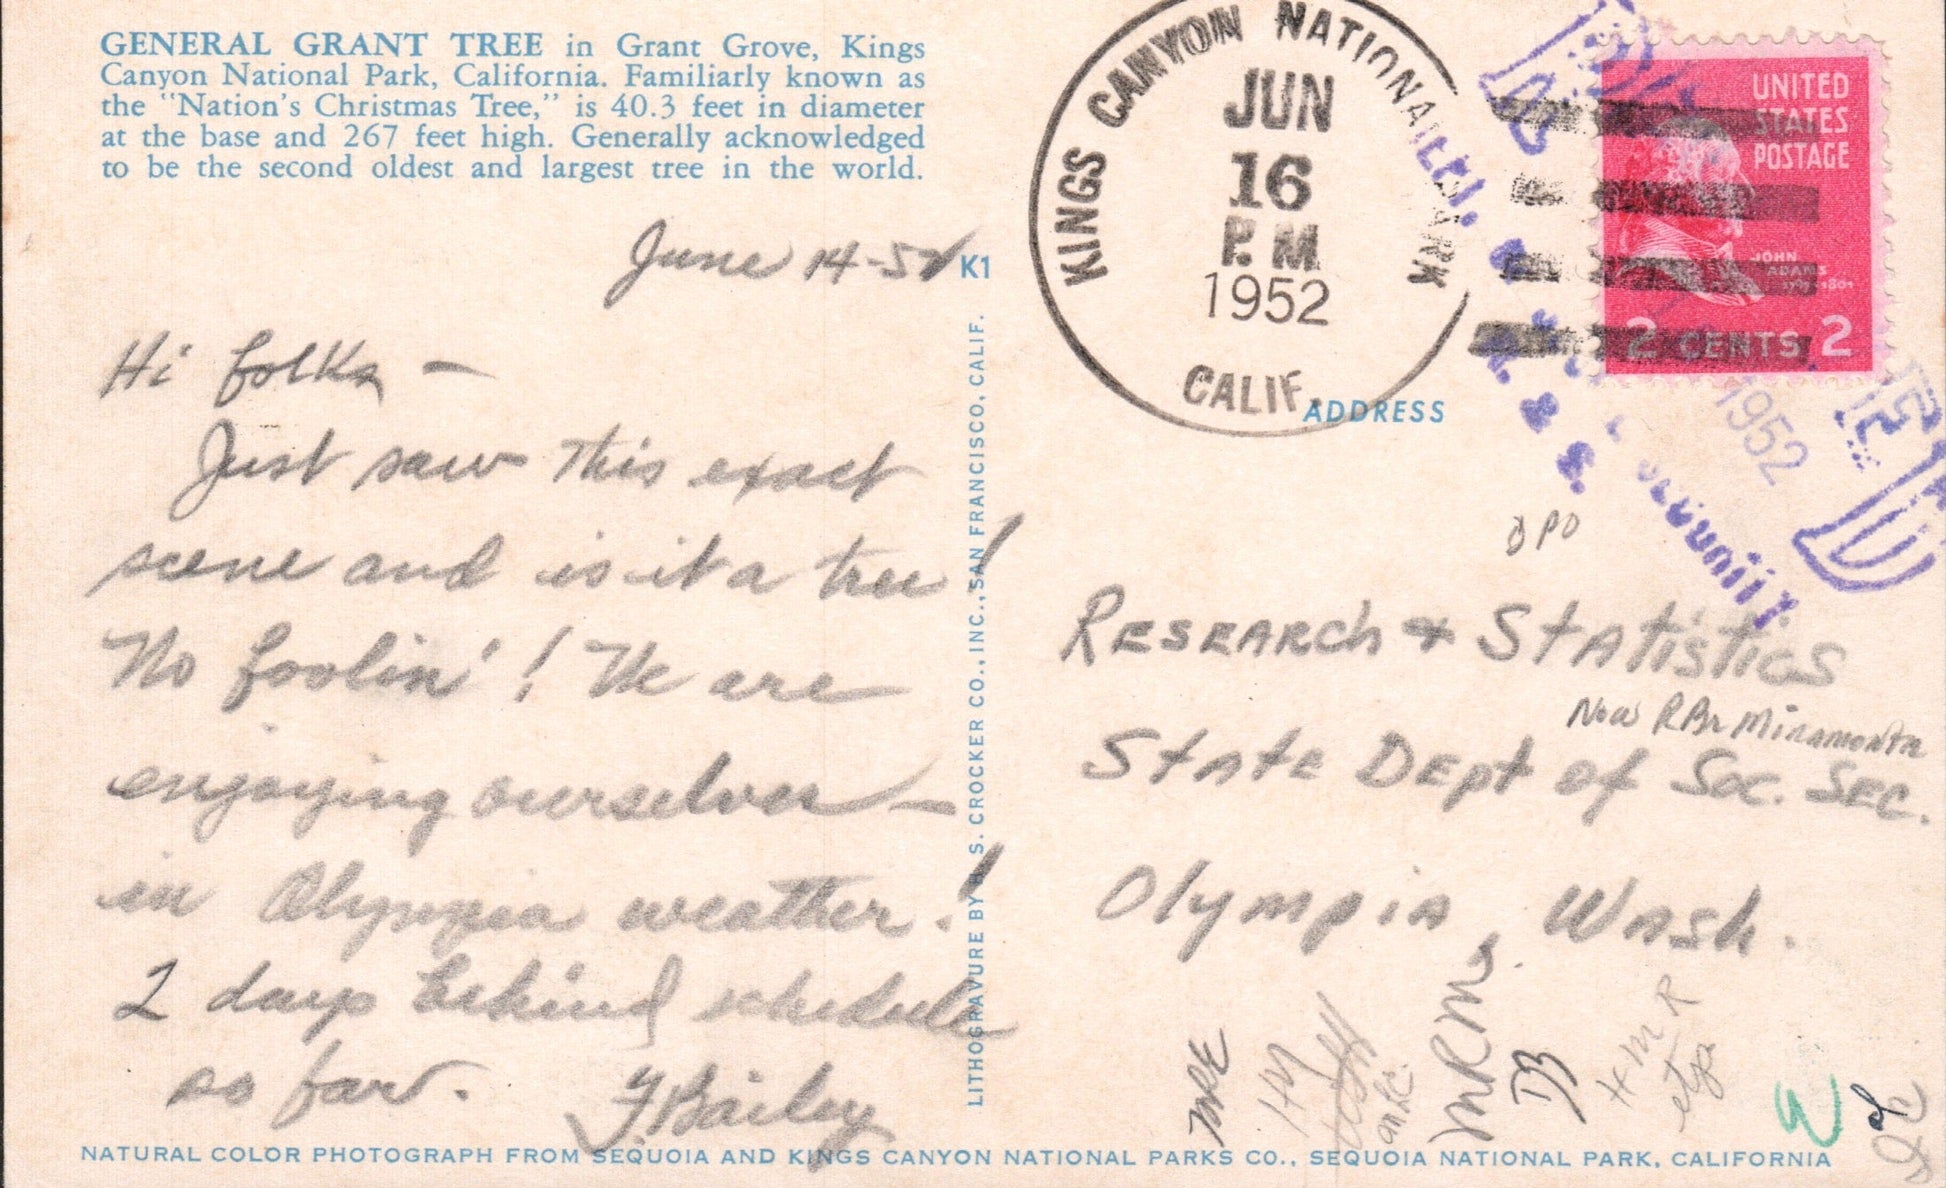 GENERAL GRANT TREE in Grant Grove, Kings
Canyon National Park, California. Familiarly known as
the "Nation's Christmas Tree," is 40.3 feet in diameter
at the base and 267 feet high. Generally acknowledged
to be the second oldest and largest tree in the world.
June 14-52
K1
Hi folks —
Just saw this exact
scene and is it a tree!
No foolin'! We are
enjoying ourselves —
in Olympia weather!
2 days behind schedule
so far.
F. Bailey
LITHOGRAVURE BY H. S. CROCKER CO., INC., SAN FRANCISCO, CALIF.
KINGS CANYON NATIONAL PARK
JUN
16
P.M
1952
CALIF.
UNITED
STATES
POSTAGE
JOHN
ADAMS
1797-1801
2 CENTS 2
1952
R. & S.
ADDRESS
DPO
Research & Statistics
Now RBr Miramonte
State Dept of Soc. Sec.
Olympia, Wash.
MRE
HM
MRMs.
DB
HMR
NATURAL COLOR PHOTOGRAPH FROM SEQUOIA AND KINGS CANYON NATIONAL PARKS CO., SEQUOIA NATIONAL PARK, CALIFORNIA